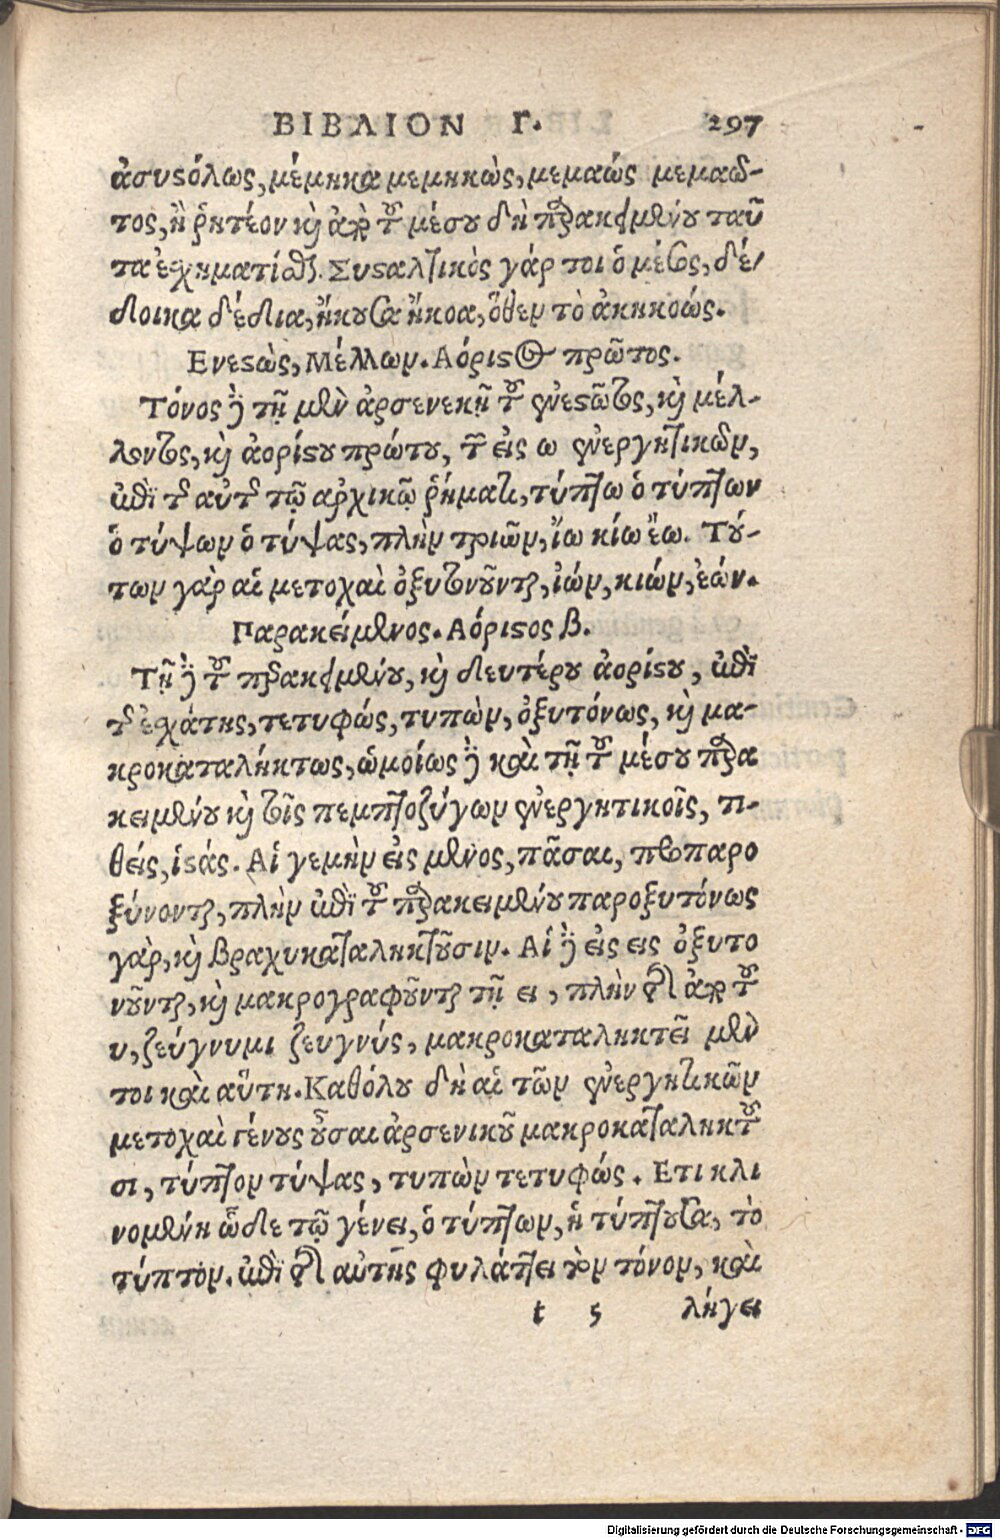 ΒΙΒΛΙΟΝ Γ. 297
ἀσυϛόλως, μέμηκα μεμηκὼς, μεμαώς μεμαό-
τος, ἢ ῥητέον κὶ ἀπὸ τοῦ μέσου δὴ παρακειμένου ταῦ
τα ἐσχηματίσθαι. Συϛαλτικὸς γάρ τοι ὁ μέσος, δέ/
δοικα δέδια, ἤκουσα ἤκοα, ὅθεν τὸ ἀκηκοώς.
Ενεϛὼς, Μέλλων. Αόριϛος πρῶτος.
Τόνος δὲ τῇ μὲν ἀρσενικῇ τοῦ ἐνεϛῶτος, κὶ μέλ-
λοντος, κὶ ἀορίϛου πρώτου, τῶν εἰς ω ἐνεργητικῶν,
ἐπὶ τῆς αὐτῆς τῷ αρχικῷ ῥήματι, τύπτω ὁ τύπτων
ὁ τύψων ὁ τύψας, πλὴν τριῶν, ἴω κίω ἔω. Τού-
των γὰρ αἱ μετοχαὶ ὀξυτονοῦνται, ἰών, κιών, ἐών.
Παρακείμενος. Αόριϛος β.
Τῇ δὲ τοῦ παρακειμένου, κὶ δευτέρου ἀορίϛου, ἐπὶ
τῆς ἐσχάτης, τετυφώς, τυπὼν, ὀξυτόνως, κὶ μα-
κροκαταλήκτως, ὡμοίως δὲ καὶ τῇ τοῦ μέσου παρα
κειμένου κὶ τοῖς πεμπτοζύγων ἐνεργητικοῖς, τι-
θείς, ἱϛάς. Αἱ γεμὴν εἰς μενος, πᾶσαι, προπαρο
ξύνονται, πλὴν ἐπὶ τοῦ παρακειμένου παροξυτόνως
γὰρ, κὶ βραχυκαταληκτοῦσιν. Αἱ δὲ εἰς εις ὀξυτο
νοῦνται, κὶ μακρογραφοῦνται τῇ ει, πλὴν τῶν ἀπὸ τοῦ
υ, ζεύγνυμι ζευγνύς, μακροκαταληκτεῖ μέν
τοι καὶ αὕτη. Καθόλου δὴ αἱ τῶν ἐνεργητικῶν
μετοχαὶ γένους οὖσαι ἀρσενικοῦ μακροκαταληκτοῦ
σι, τύπτον τύψας, τυπὼν τετυφώς. Ετι κλι
νομένη ὧδε τῷ γένει, ὁ τύπτων, ἡ τύπτουσα, τὸ
τύπτον. ἐπὶ τῶν αὐτῆς φυλάττει τὸν τόνον, καὶ
t ς λήγει
Digitalisierung gefördert durch die Deutsche Forschungsgemeinschaft - DFG